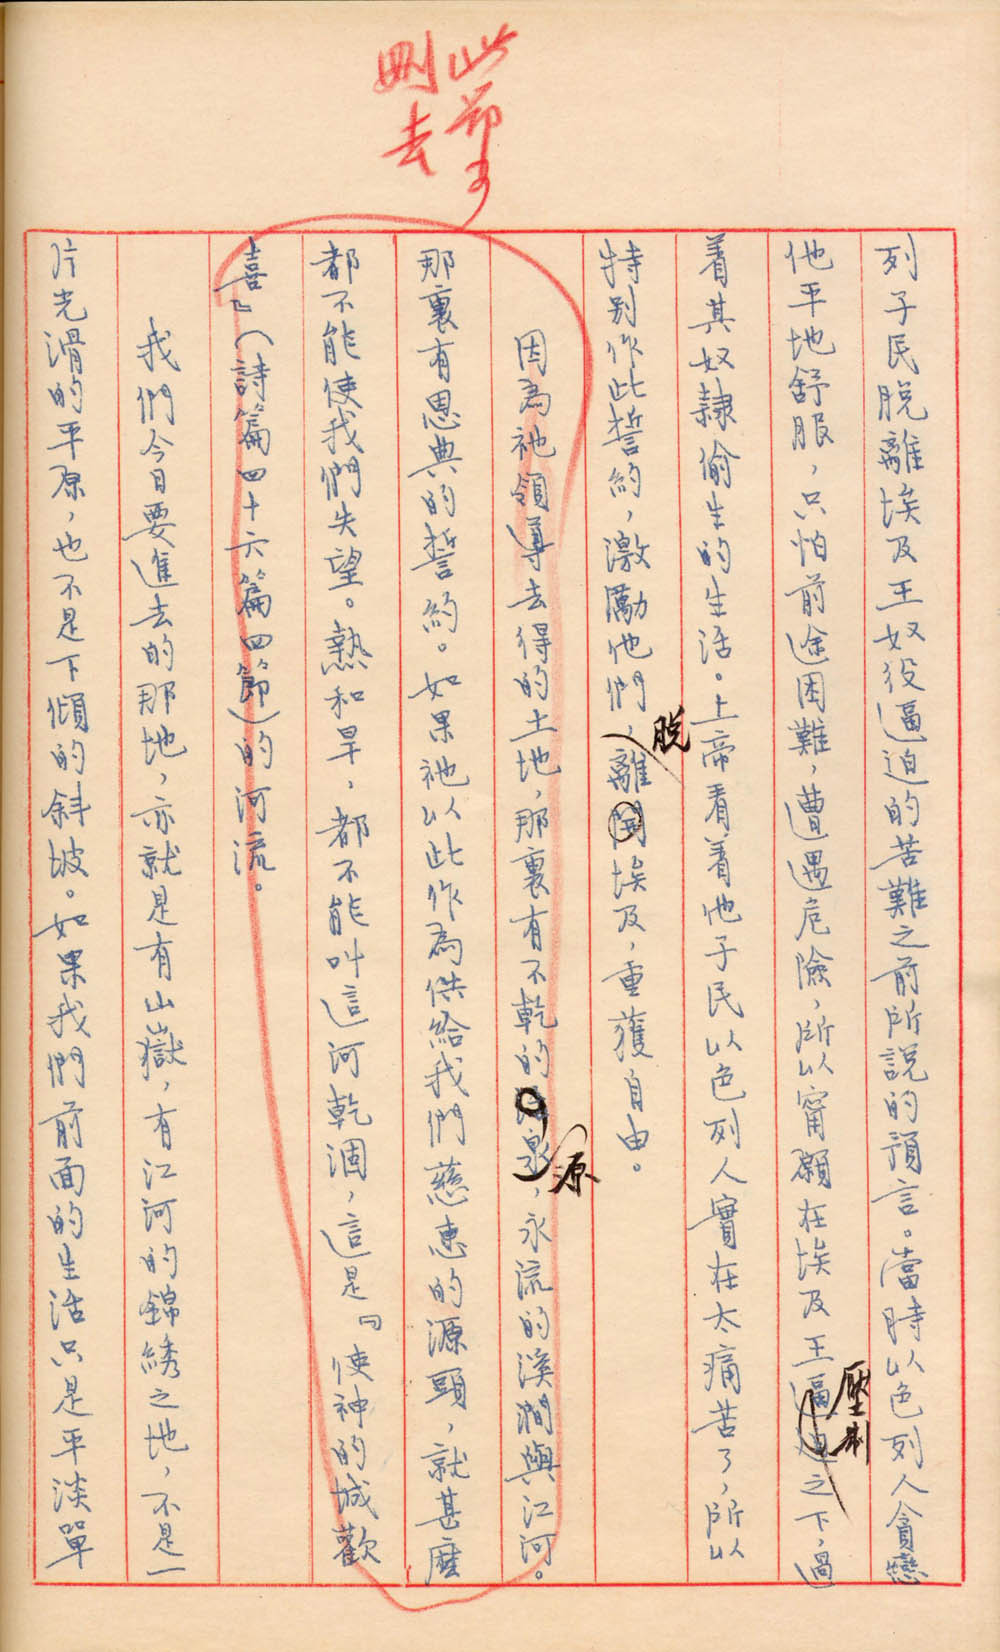 此節可
刪去
列子民脫離埃及王奴役逼迫的苦難之前所説的預言。當時以色列人貪戀
他平地舒服，只怕前途困難，遭遇危險，所以甯願在埃及王逼迫之下，過
壓制
着其奴隸偷生的生活。上帝看着他子民以色列人實在太痛苦了，所以
特别作此誓約，激勵他們，離開埃及，重獲自由。
脫
因為祂領導去得的土地，那裏有不乾的泉，永流的溪澗與江河。
源
那裏有恩典的誓約。如果祂以此作為供給我們慈惠的源頭，就甚麼
都不能使我們失望。熱和旱，都不能叫這河乾涸，這是『使神的城歡
喜』（詩篇四十六篇四節）的河流。
我們今日要進去的那地，亦就是有山嶽，有江河的錦綉之地，不是一
片光滑的平原，也不是下傾的斜坡。如果我們前面的生活只是平淡單